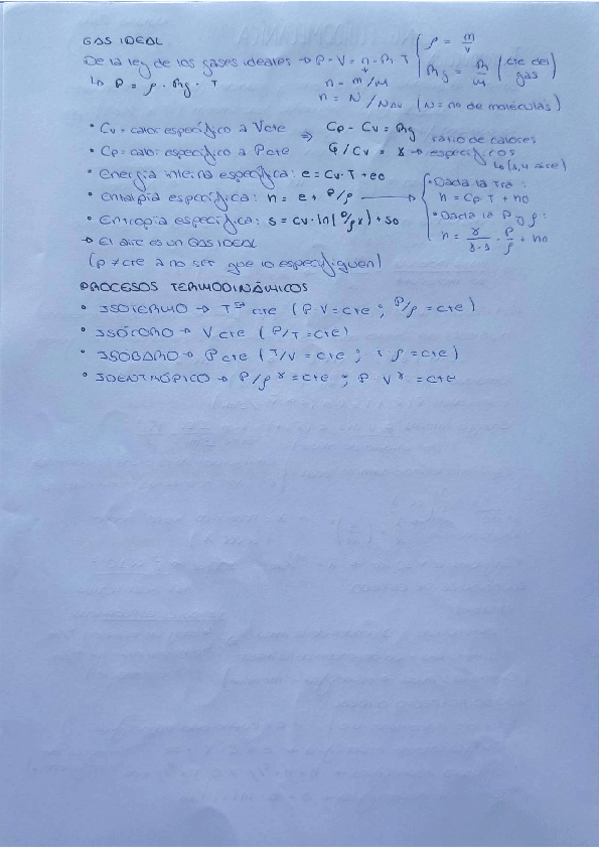 GAS IDEAL
De la ley de los gases ideales → P · V = n · R · T { ρ = m/V
Rg = R/M (cte del gas)
↳ P = ρ · Rg · T
n = m/M
n = N/NAV (N = no de moléculas)
• Cv = calor específico a Vcte ⇒ Cp - Cv = Rg
• Cp = calor específico a Pcte Cp/Cv = γ → ratio de calores específicos
↳ (1,4 aire)
• Energía interna específica: e = Cv · T + eo
• Entalpía específica: h = e + P/ρ → { • Dada la Tra:
h = Cp T + ho
• Dada la P o ρ:
h = γ/γ-1 · P/ρ + ho
• Entropía específica: s = cv · ln(P/ργ) + so
→ El aire es un GAS IDEAL
(ρ ≠ cte a no ser que lo especifiquen)
PROCESOS TERMODINÁMICOS
• ISOTERMO → Tra cte (P V = cte ; P/ρ = cte)
• ISÓCORO → V cte (P/T = cte)
• ISOBARO → P cte (T/V = cte ; T ρ = cte)
• ISOENTRÓPICO → P/ργ = cte ; P Vγ = cte